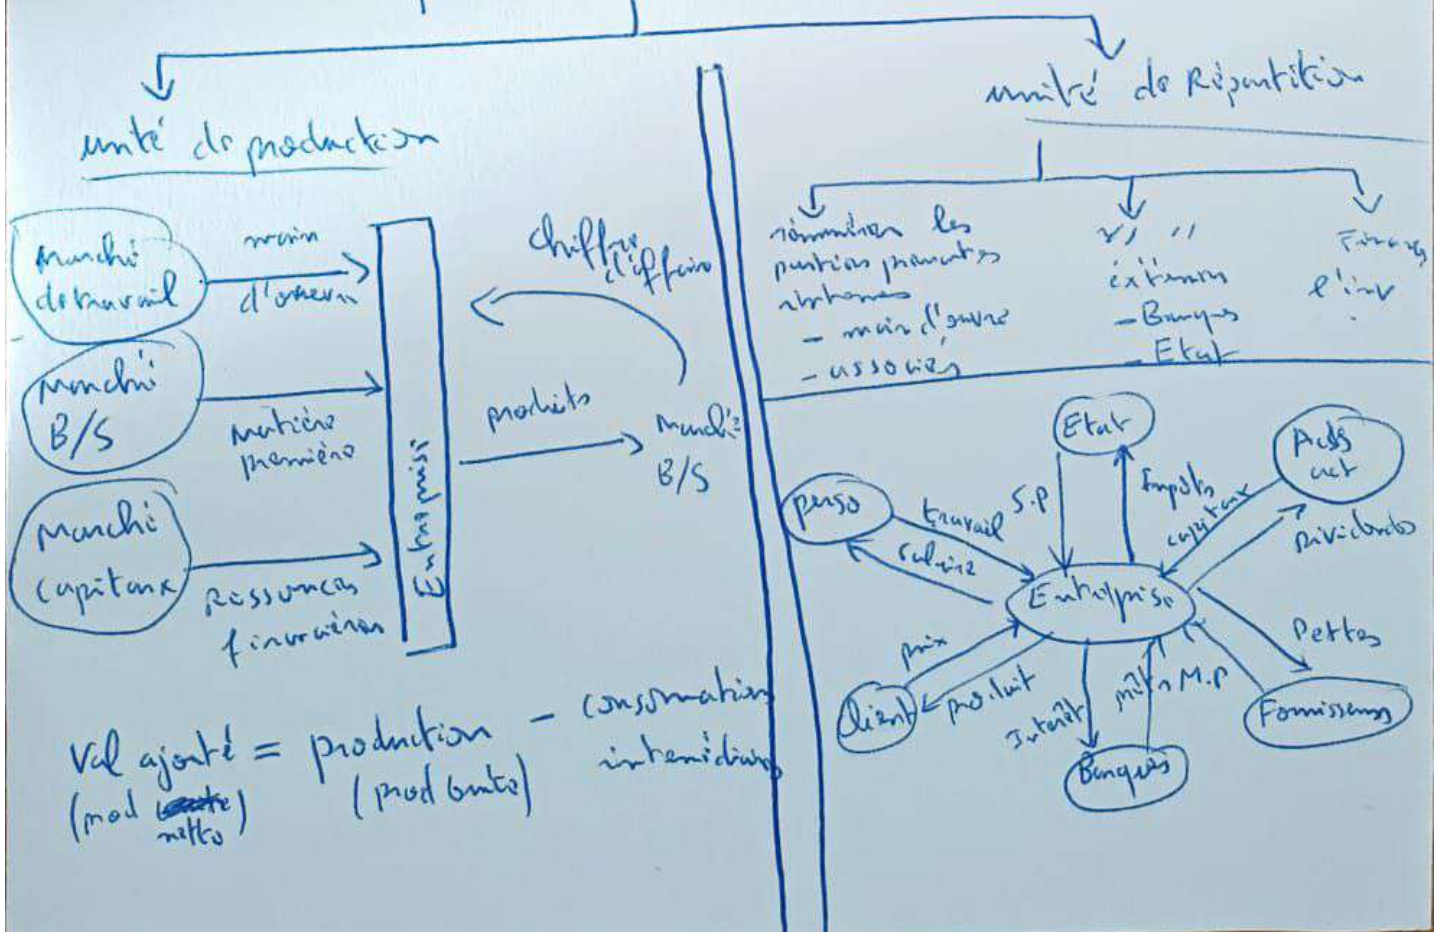 unité de production
Marché
de travail
main
d'œuvre
Marché
B/S
Matière
première
Marché
Capitaux
Ressources
financières
Entreprise
Chiffre
d'affaire
produits
Marché
B/S
Val ajouté = production - consommation
(prod brute netto) (prod brute) intermédiaires
unité de Répartition
rémunérer les
parties prenantes
internes
- main d'œuvre
- associés
" "
externes
- Banques
- Etat
Financer
l'inv
Etat
S.P
Impôts
perso
travail
salaire
capitaux
Dividendes
Entreprise
prix
produit
Client
Intérêt
prêts
M.P
Banques
Dettes
Fournisseurs